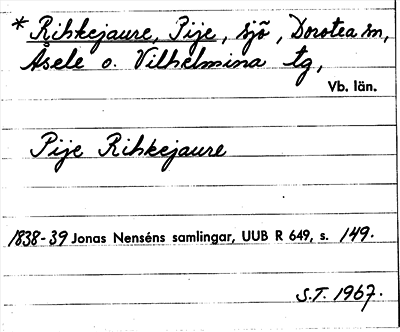 * Rihkejaure, Pije, sjö, Dorotea sn,
Åsele o. Vilhelmina tg,
Vb. län.
Pije Rihkejaure
1838-39 Jonas Nenséns samlingar, UUB R 649, s. 149.
S.T. 1967.